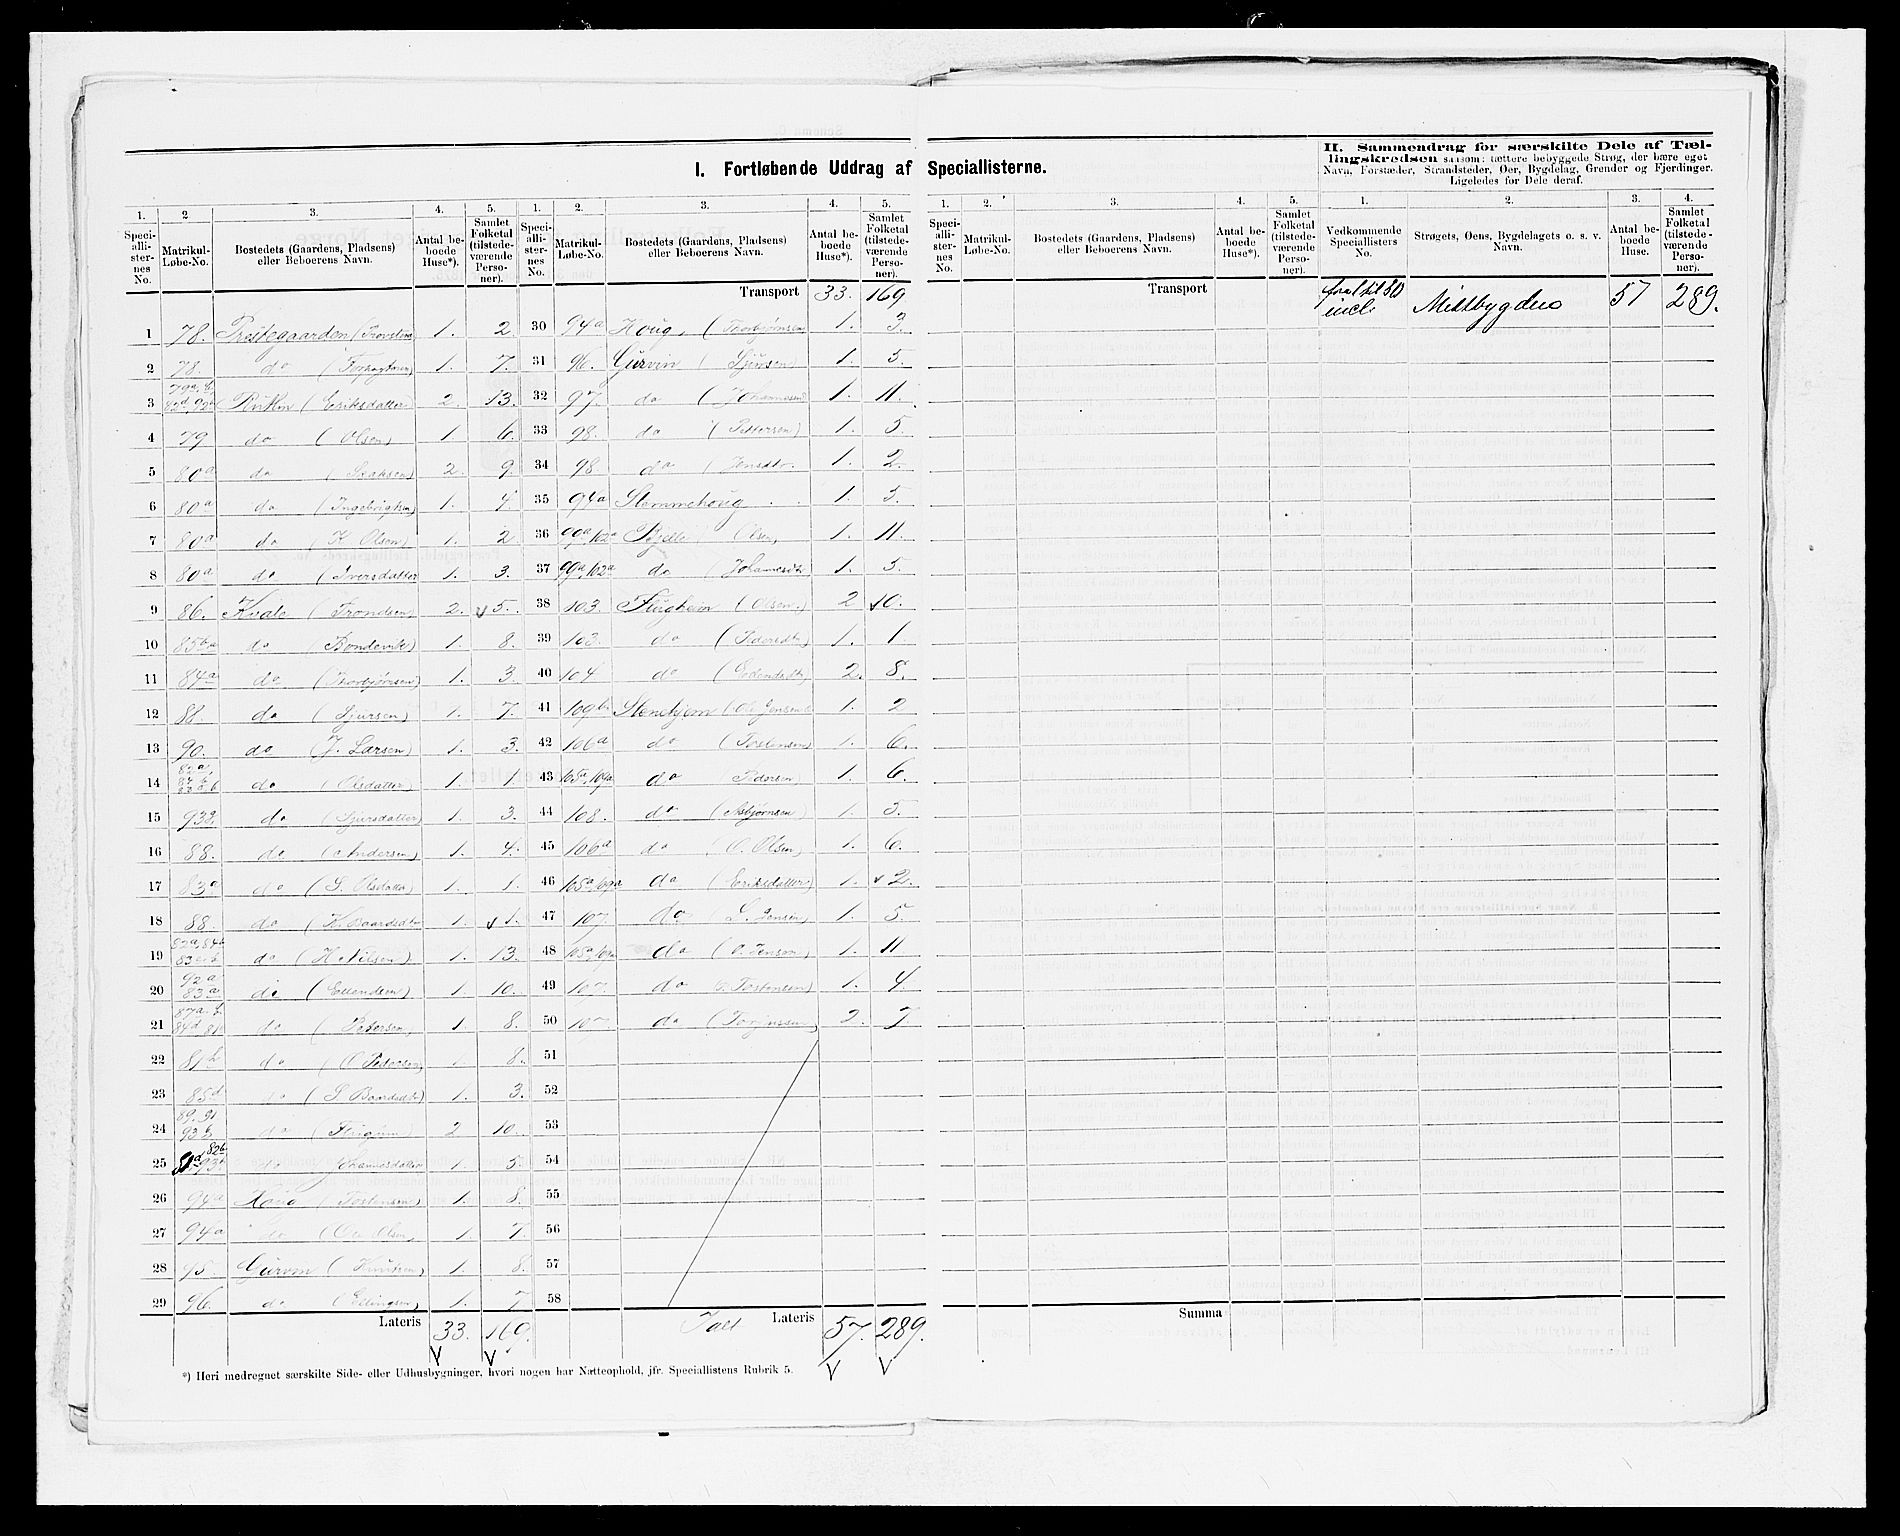 I. Fortløbende Uddrag af Speciallisterne.
II. Sammendrag for særskilte Dele af Tæl-
lingskredsen saasom: tættere bebyggede Strøg, der bære eget
Navn, Forstæder, Strandsteder, Øer, Bygdelag, Grender og Fjerdinger.
Ligeledes for Dele deraf.
1. 2 3. 4. 5. 1. 2. 3. 4. 5. 1. 2. 3. 4. 5. 1. 2. 3. 4.
Speciallisternes No. Matrikul-Løbe-No. Bostedets (Gaardens, Pladsens) eller Beboerens Navn. Antal beboede Huse*). Samlet Folketal (tilstedeværende Personer).
Speciallisternes No. Matrikul-Løbe-No. Bostedets (Gaardens, Pladsens) eller Beboerens Navn. Antal beboede Huse*). Samlet Folketal (tilstedeværende Personer).
Speciallisternes No. Matrikul-Løbe-No. Bostedets (Gaardens, Pladsens) eller Beboerens Navn. Antal beboede Huse*). Samlet Folketal (tilstedeværende Personer).
Vedkommende Speciallisters No. Strøgets, Øens, Bygdelagets o. s. v. Navn. Antal beboede Huse. Samlet Folketal (tilstedeværende Personer).
1 78. Prestegaarden 1. 2
2 78. do (Forpagteren) 1. 7.
3 (Eriksdatter 2. 13.
4 79 do (Olsen) 1. 6.
5 80a do 2. 9
6 80a do (Ingebrigtsen) 1. 4
7 80a do (K Olsen) 1. 2
8 80a do (Iversdatter 1. 3.
9 86. Kvale (Trondsen) 2. 5.
10 do (Bondevik) 1. 8.
11 84a do (Thorbjørnsen) 1. 3.
12 88. do (Sjursen) 1. 7.
13 90. do (J. Larsen) 1. 3.
14 do (Olsdatter) 1. 1.
15 do (Sjursdatter) 1. 3.
16 88. do (Andersen) 1. 4.
17 83a do (S. Olsdatter 1. 1.
18 88. do (K. Baardsdtr 1. 1.
19 do (H Nilsen) 1. 13.
20 92a 83a do (Ellendsen) 1. 10.
21 do (Petersen, 1. 8.
22 81b do (O Pedersen, 1. 8.
23 85d do (S Baardsdtr) 1. 3.
24 89. 91 93b do 2 10.
25 do Johannesdatter 1. 5.
26 94a Houg (Tostensen) 1. 8.
27 94a do (Ole Olsen, 1. 7.
28 95. Gurvin (Knutsen) 1. 8.
29 96. do (Ellingsen, 1. 7
Lateris 33. 169.
Transport 33. 169
30 94a Houg, (Thorbjørnsen 1. 3.
31 96. Gurvin (Sjursen) 1. 5.
32 97. do (Johannessen 1. 11.
33 98. do (Pettersen) 1. 5.
34 98. do (Jensdtr. 1. 2.
35 94a Stemmehoug 1. 5.
36 99a,102a Bjelle (Olsen, 1. 11.
37 99a,102a do (Johannesdtr 1. 5.
38 103. Flugheim (Olsen.) 2 10.
39 103. do (Pedersdtr) 1. 1
40 104 do 2. 8.
41 109b Stenehjem (Ole Jensen 1. 2
42 106a do (Tostensen) 1. 6.
43 105a,109a do (Pedersen) 1. 6.
44 108. do (Asbjørnsen) 1. 5.
45 106a do (O. Olsen) 1. 6.
46 105a,109a do (Eriksdatter) 1. 2.
47 107 do (L. Jensen) 1. 5.
48 105a,109a do (O. Jensen) 1. 11
49 107. do (Tostensen) 1. 4
50 107 do 2. 7
51
52
53
54
55
56
57
58
Ialt Lateris 57. 289.
Transport
Summa
incl. Midtbygden 57 289.
*) Heri medregnet særskilte Side- eller Udhusbygninger, hvori nogen har Natteophold, jfr. Speciallistens Rubrik 5.